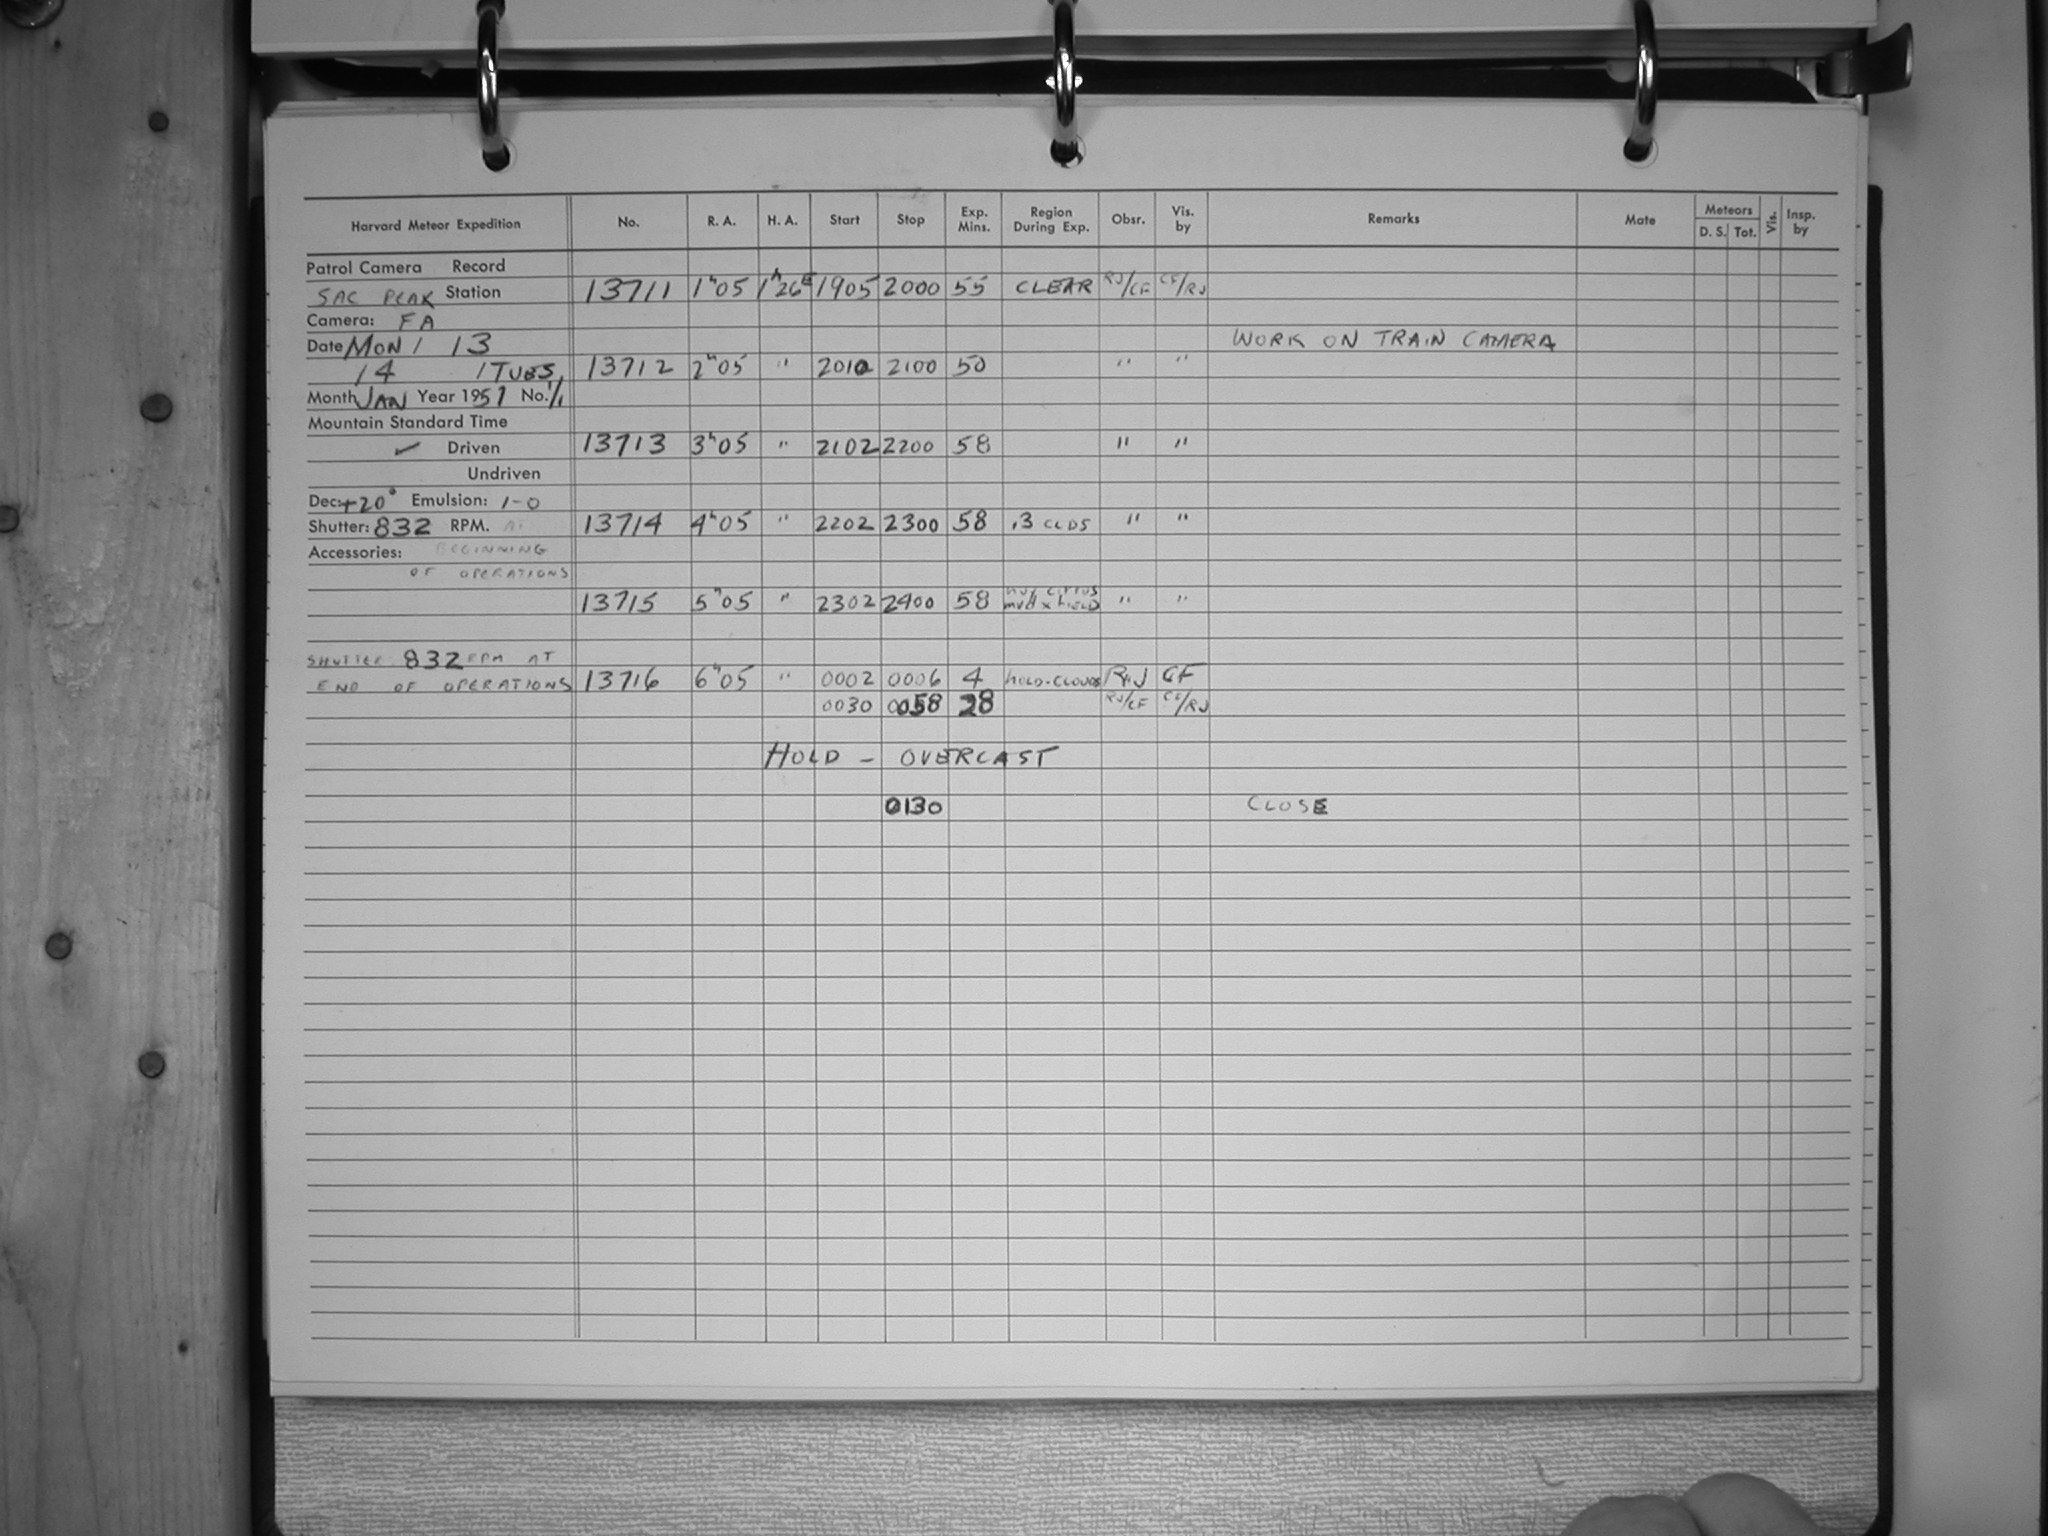 Harvard Meteor Expedition No. R. A. H. A. Start Stop Exp. Mins. Region During Exp. Obsr. Vis. by Remarks Mate Meteors D. S. Tot. Vis. Insp. by
Patrol Camera Record
SAC PEAK Station 13711 1ʰ05 1ʰ26E 1905 2000 55 CLEAR RJ/CF CF/RJ
Camera: FA
Date MON / 13 WORK ON TRAIN CAMERA
14 / TUES 13712 2ʰ05 " 2010 2100 50 " "
Month JAN Year 195 No. 1/1
Mountain Standard Time
✓ Driven 13713 3ʰ05 " 2102 2200 58 " "
Undriven
Dec: +20° Emulsion: 1-0
Shutter: 832 RPM. AT 13714 4ʰ05 " 2202 2300 58 .3 CLDS " "
Accessories: BEGINNING
OF OPERATIONS
13715 5ʰ05 " 2302 2400 58 hvy cirrus mvd x FIELD " "
SHUTTER 832 RPM AT
END OF OPERATIONS 13716 6ʰ05 " 0002 0006 4 HOLD-CLOUDS RJ CF
0030 0058 28 RJ/CF CF/RJ
HOLD - OVERCAST
0130 CLOSE